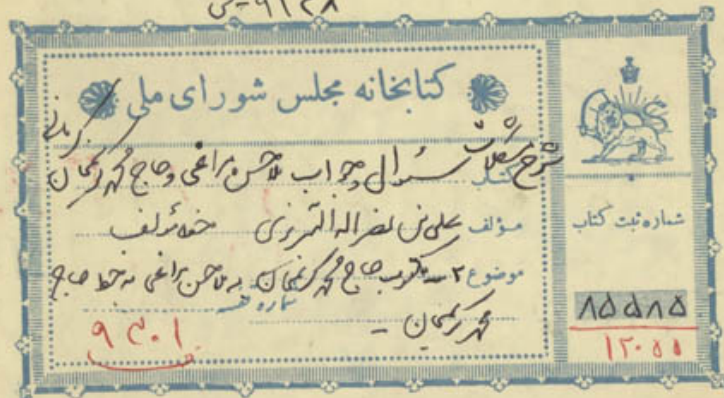 ۹۱۲۸
کتابخانه مجلس شورای ملی
شرح مشکلات سئوال و جواب ملا حسن مراغی و حاج محمد کریمخان کرمانی
کتاب
مؤلف علی بن نصر الله التبریزی خط مؤلف
موضوع ۲ مکتوب حاج محمد کریمخان به ملا حسن مراغی به خط حاج
محمد کریمخان
شماره قفسه
۹۳۰۱
شماره ثبت کتاب
۸۵۵۸۵
۱۲۰۵۵